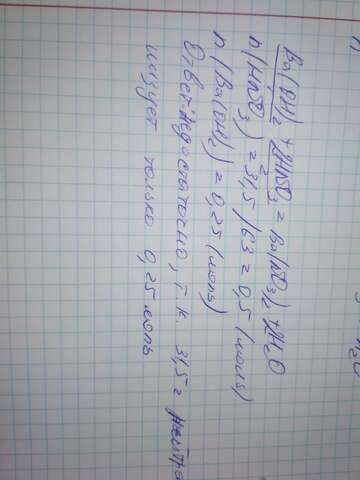 Ba(OH)₂ + 2HNO₃ = Ba(NO₃)₂ + 2H₂O
n(HNO₃) = 31,5/63 = 0,5 (моль)
n(Ba(OH)₂) = 0,25 (моль)
Ответ: недостаточно, т.к. 31,5г нейтра
лизует только 0,25 моль